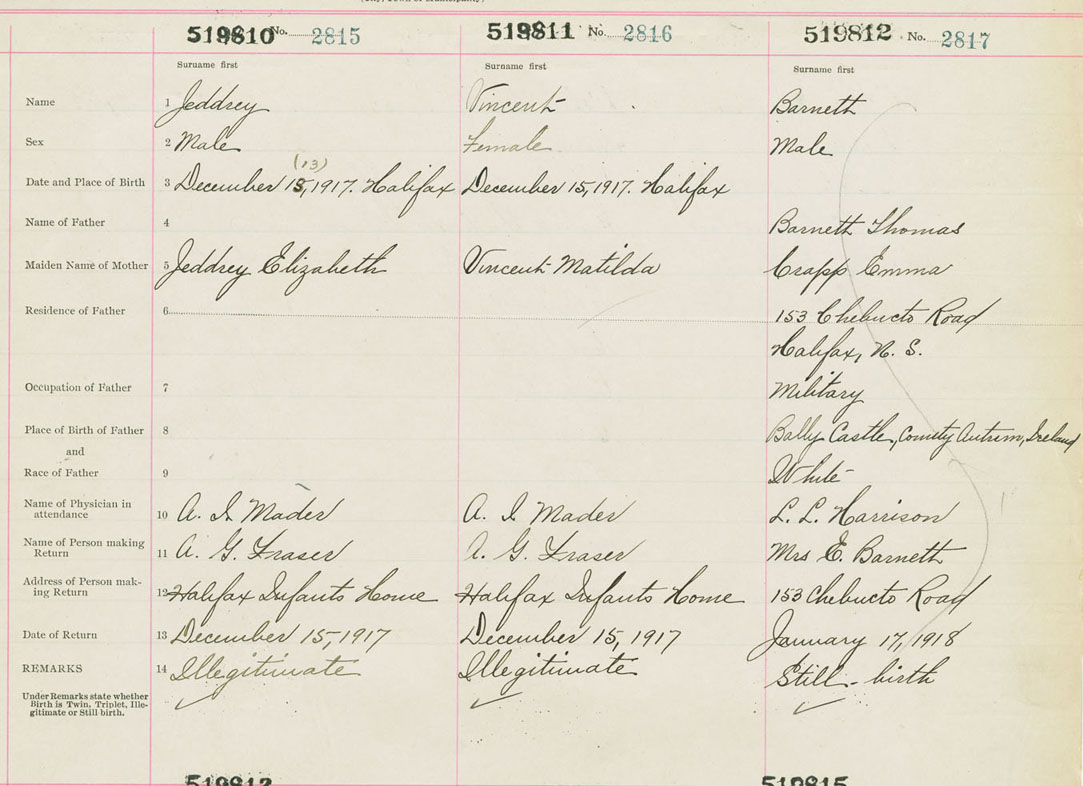 519810 No. 2815 519811 No. 2816 519812 No. 2817
Surname first Surname first Surname first
Name 1 Jeddrey Vincent Barneth
Sex 2 Male Female Male
(13)
Date and Place of Birth 3 December 15, 1917. Halifax December 15, 1917. Halifax
Name of Father 4 Barneth Thomas
Maiden Name of Mother 5 Jeddrey Elizabeth Vincent Matilda Crapp Emma
Residence of Father 6 153 Chebucto Road
Halifax, N. S.
Occupation of Father 7 Military
Place of Birth of Father 8 Bally Castle, County Antrim, Ireland
and
Race of Father 9 White
Name of Physician in
attendance 10 A. I. Mader A. I. Mader L. L. Harrison
Name of Person making
Return 11 A. G. Fraser A. G. Fraser Mrs E. Barneth
Address of Person mak-
ing Return 12 Halifax Infants Home Halifax Infants Home 153 Chebucto Road
Date of Return 13 December 15, 1917 December 15, 1917 January 17, 1918
REMARKS 14 Illegitimate Illegitimate Still-birth
Under Remarks state whether
Birth is Twin, Triplet, Ille-
gitimate or Still birth.
519813 519815